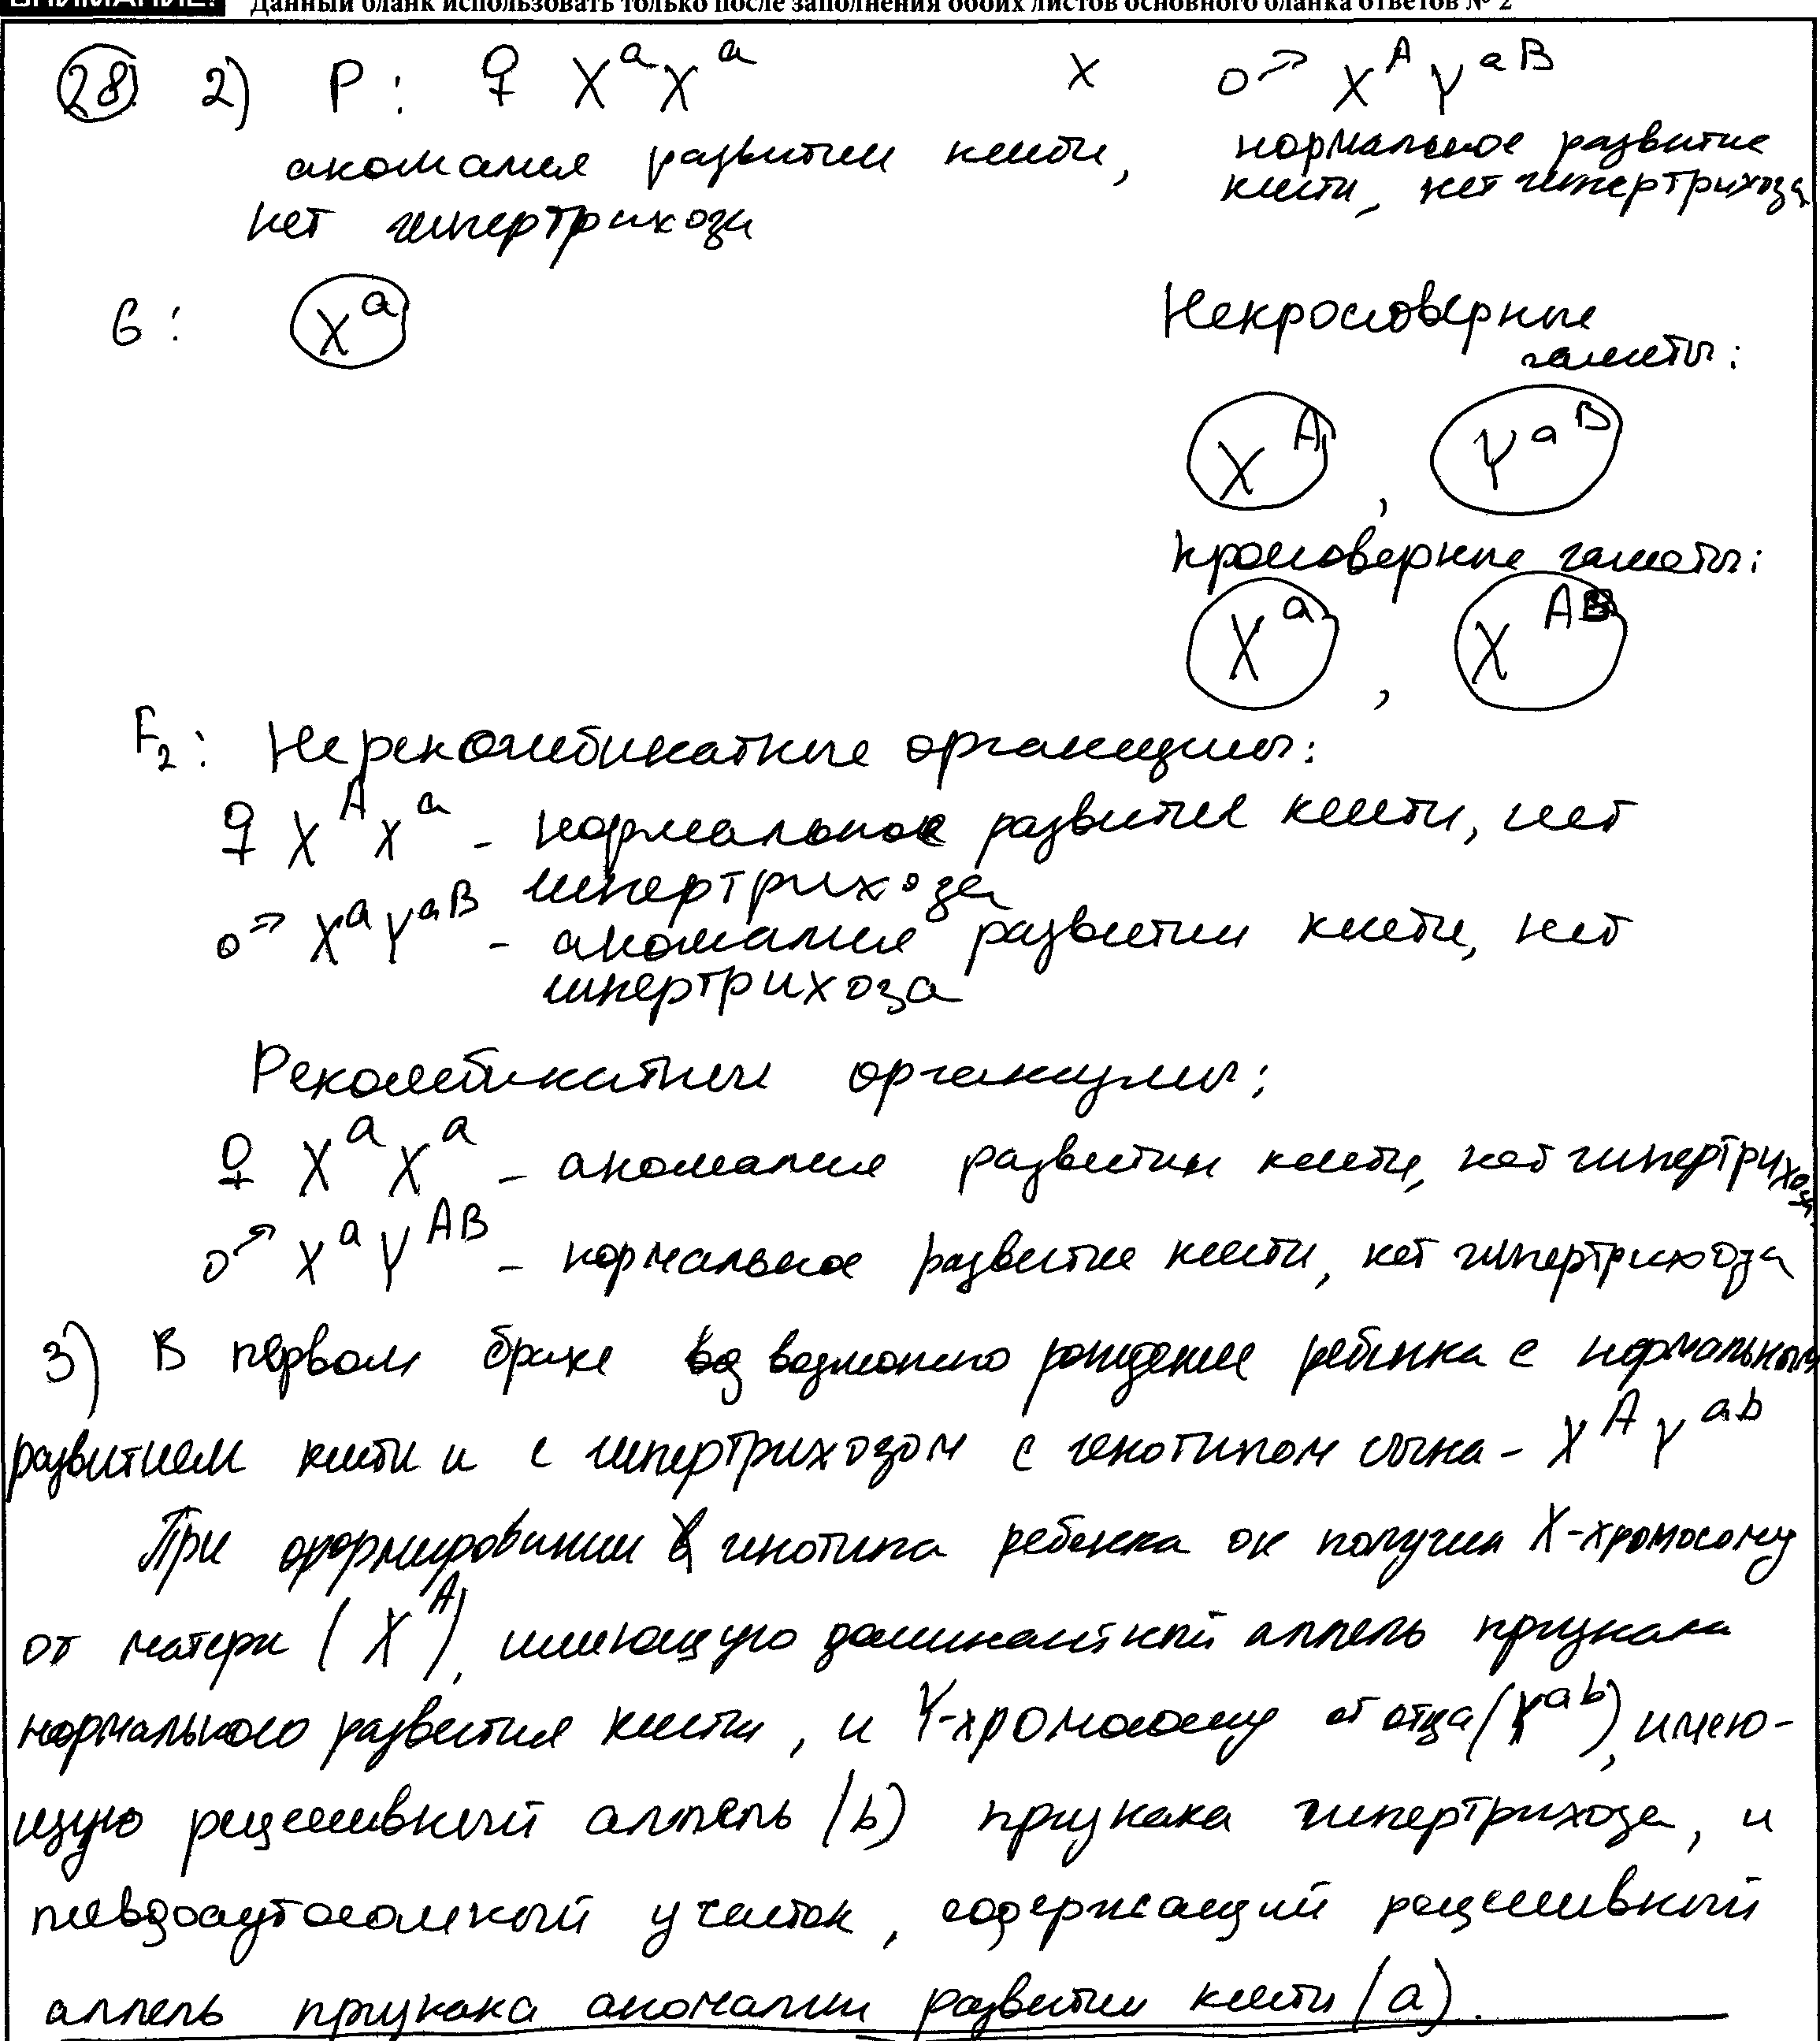 ВНИМАНИЕ! Данный бланк использовать только после заполнения обоих листов основного бланка ответов № 2
28 2) P: ♀ XᵃXᵃ x ♂ XᴬYᵃᴮ
аномалия развития кисти, нормальное развитие
нет гипертрихоза кисти, нет гипертрихоза
G: Xᵃ Некроссоверные
гаметы:
Xᴬ, Yᵃᴮ
кроссоверные гаметы:
Xᵃ, Xᴬᴮ
F₂: Нерекомбинатные организмы:
♀ XᴬXᵃ - нормальное развитие кисти, нет
гипертрихоза
♂ XᵃYᵃᴮ - аномалия развития кисти, нет
гипертрихоза
Рекомбинатные организмы:
♀ XᵃXᵃ - аномалия развития кисти, нет гипертрихоза
♂ XᵃYᴬᴮ - нормальное развитие кисти, нет гипертрихоза
3) В первом браке возможно рождение ребёнка с нормальным
развитием кисти и с гипертрихозом с генотипом сына - XᴬYᵃᵇ
При формировании генотипа ребенка он получил X-хромосому
от матери (Xᴬ), имеющую доминантный аллель признака
нормального развития кисти, и Y-хромосому от отца (Yᵃᵇ), имею-
щую рецессивный аллель (b) признака гипертрихоза, и
псевдоаутосомный участок, содержащий рецессивный
аллель признака аномалии развития кисти (a).